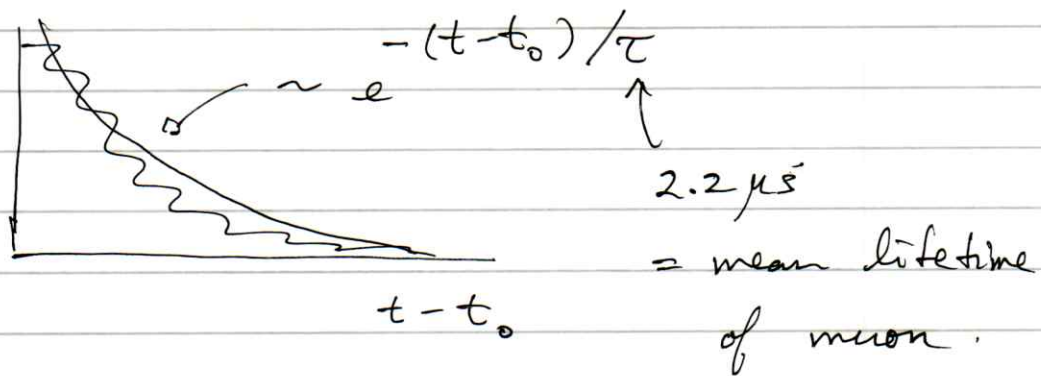 ~ e^{-(t-t₀)/τ}
2.2 μs
= mean lifetime
of muon.
t-t₀